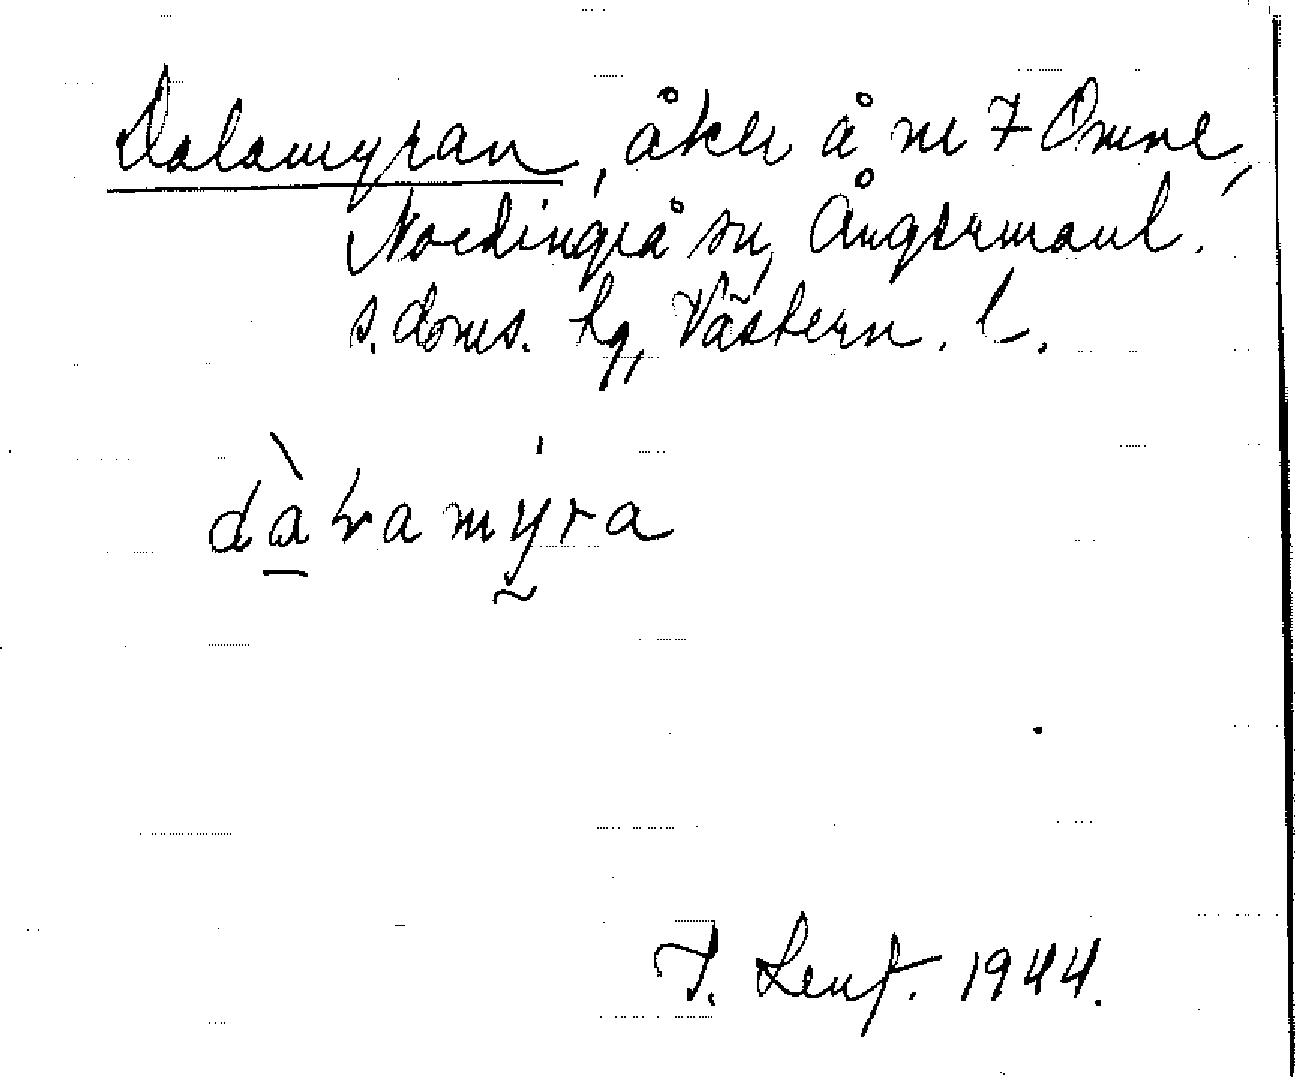 Dalamyran, åker å nr 7 Omne,
Nordingrå sn, Ångermanl.
s. doms. hg, Västern. l.
dàlramýra
T. Lenf. 1944.